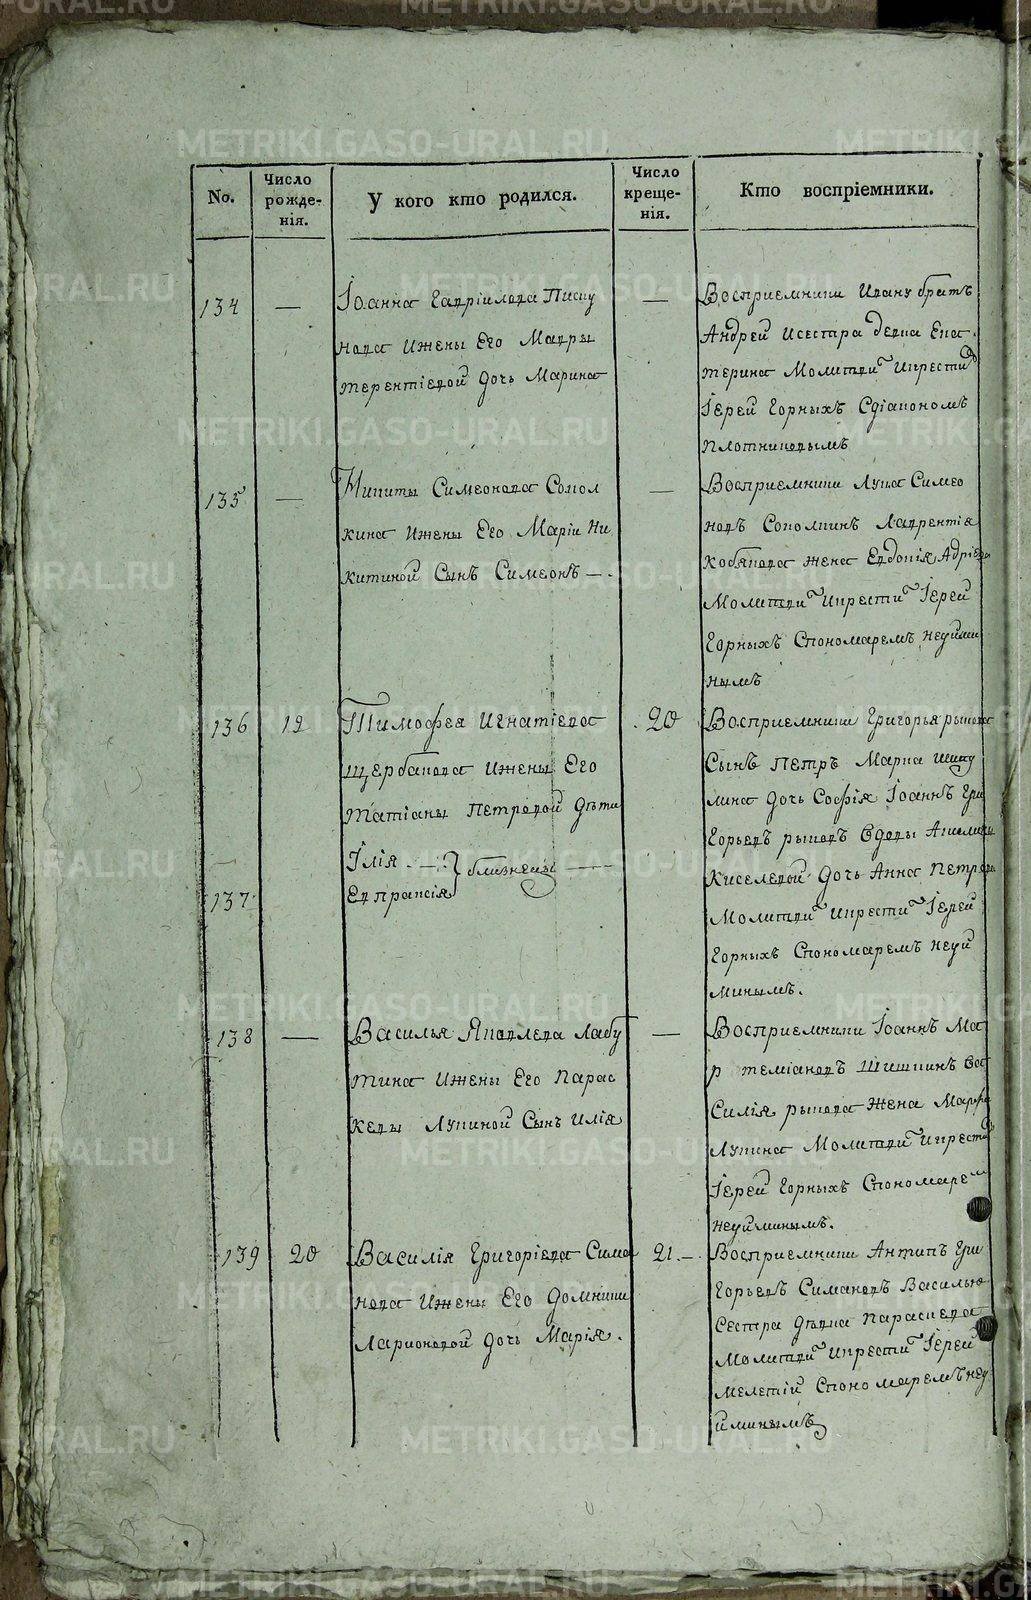 No.
Число рожде-нія.
У кого кто родился.
Число креще-нія.
Кто воспріемники.
134
—
Іоанна Гавріилова Пису
нова ижены Его Мавры
терентіевой дочь Марина
—
Восприемники Ивану братъ
Андрей исестра девка Ека
терина Молитви и крести
Іерей Горныхъ Сдіакономъ
плотниковымъ
135
—
Никиты Симеонова Сокол
кина ижены Его Маріи Ни
китиной Сынъ Симеонъ —.
—
Восприемники Лука Симео
новъ Соколкинъ Лаврентія
Кобякова жена Евдокія
Молитви и крести Іерей
Горныхъ Спономаремъ Неуйми
нымъ
136
12
Тимофея Игнатіева
щербакова ижены Его
татіаны Петровой дѣти
Ілія — } близнецы —
137
Евпраксія
20
Восприемники Григорья рыкова
Сынъ Петръ Марка
лина дочь Софія Іоаннъ Гри
Горьевъ рыковъ вдовы
Киселевой дочь Анна Петрова
Молитви и крести Іерей
Горныхъ Спономаремъ Неуй
минымъ.
138
—
Василья Яковлева Лабу
тина ижены Его Парас
кевы Лукиной Сынъ Илія
—
Восприемники Іоаннъ Ма
р темiановъ Шишкинъ Ва
Силія рыкова жена Марфа
Лукина Молитви и крести
Іерей Горныхъ Спономаре
Неуйминымъ.
139
20
Василія Григоріева Сима
нова ижены Его домники
Ларионовой дочь Марія.
21.—
Восприемники Антипъ Гри
Горьевъ Симановъ Василью
Сестра дѣвка Параскева
Молитви и крести Іерей
мелетій Спономаремъ неу
йминымъ
METRIKI.GASO-URAL.RU